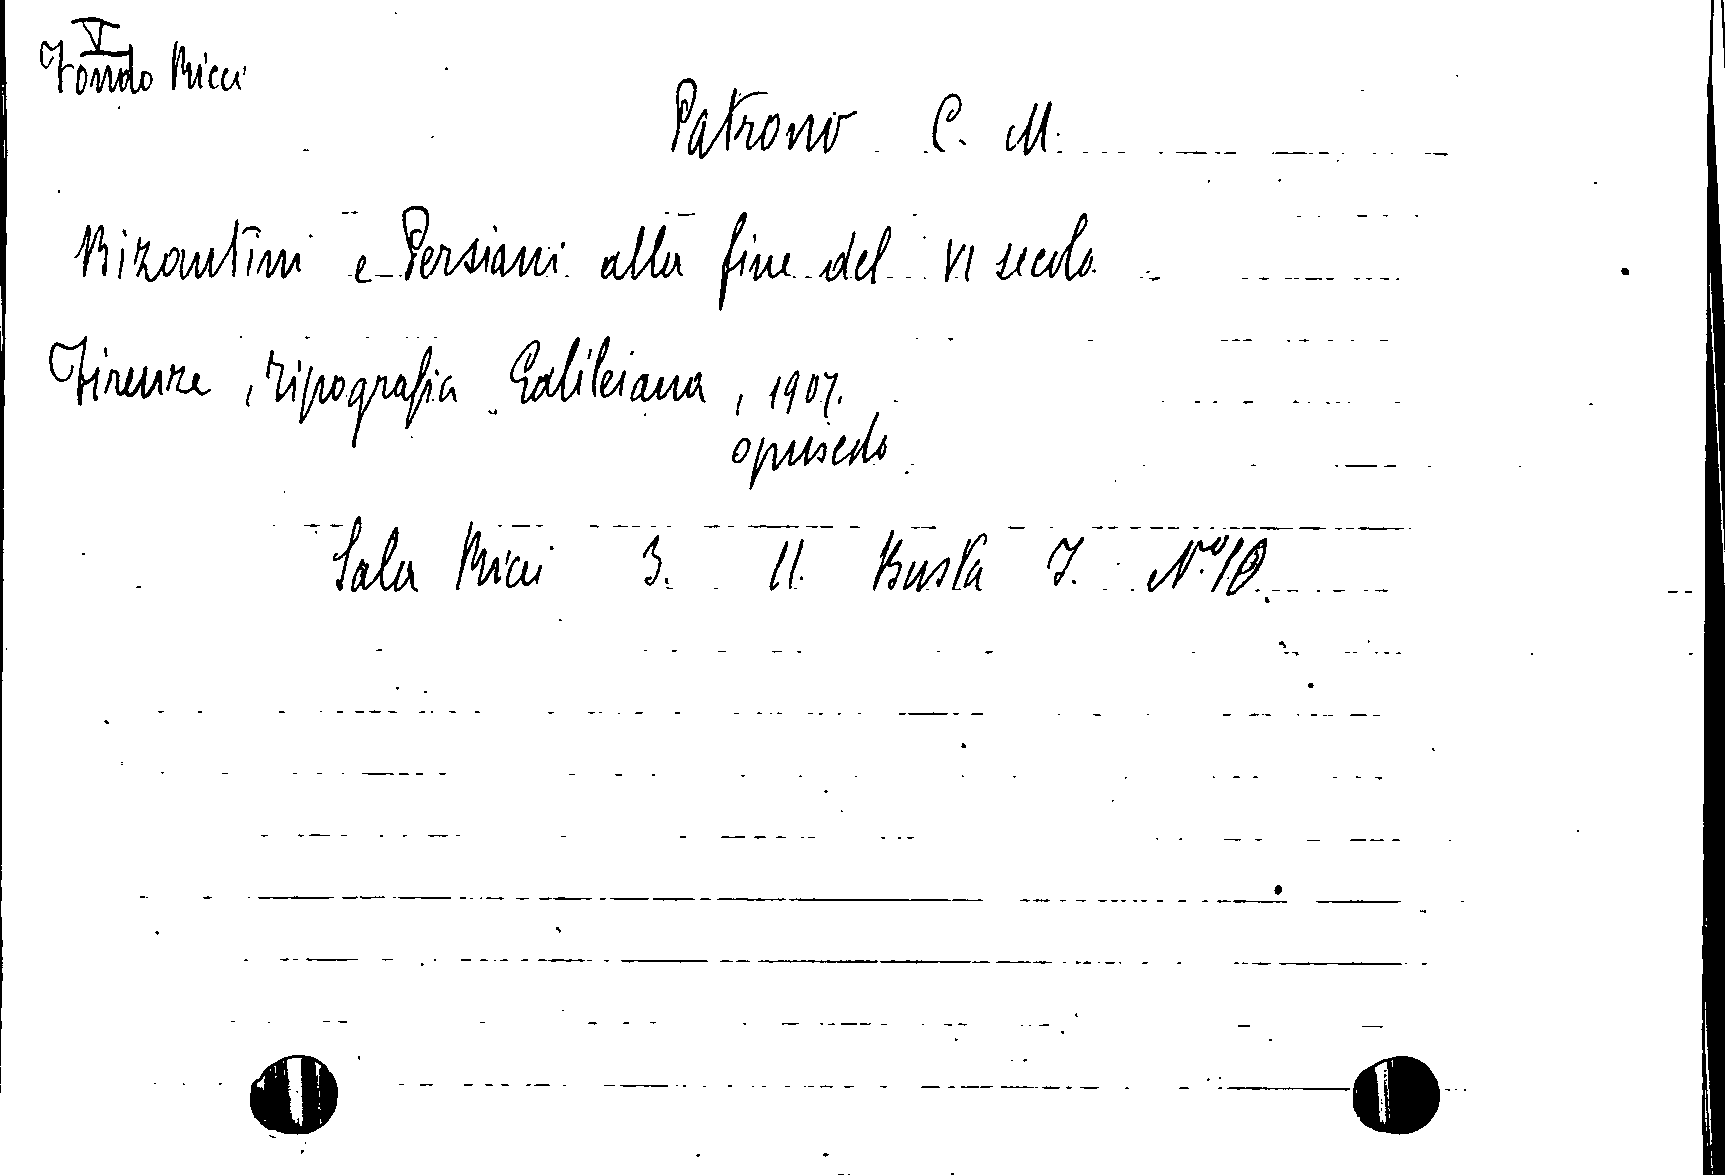 V
Fondo Ricci
Patrono C. M.
Bizantini e Persiani alla fine del VI secolo
Firenze, Tipografia Galileiana, 1907.
opuscolo
Sala Ricci 3. 11. Busta I. N.º 10